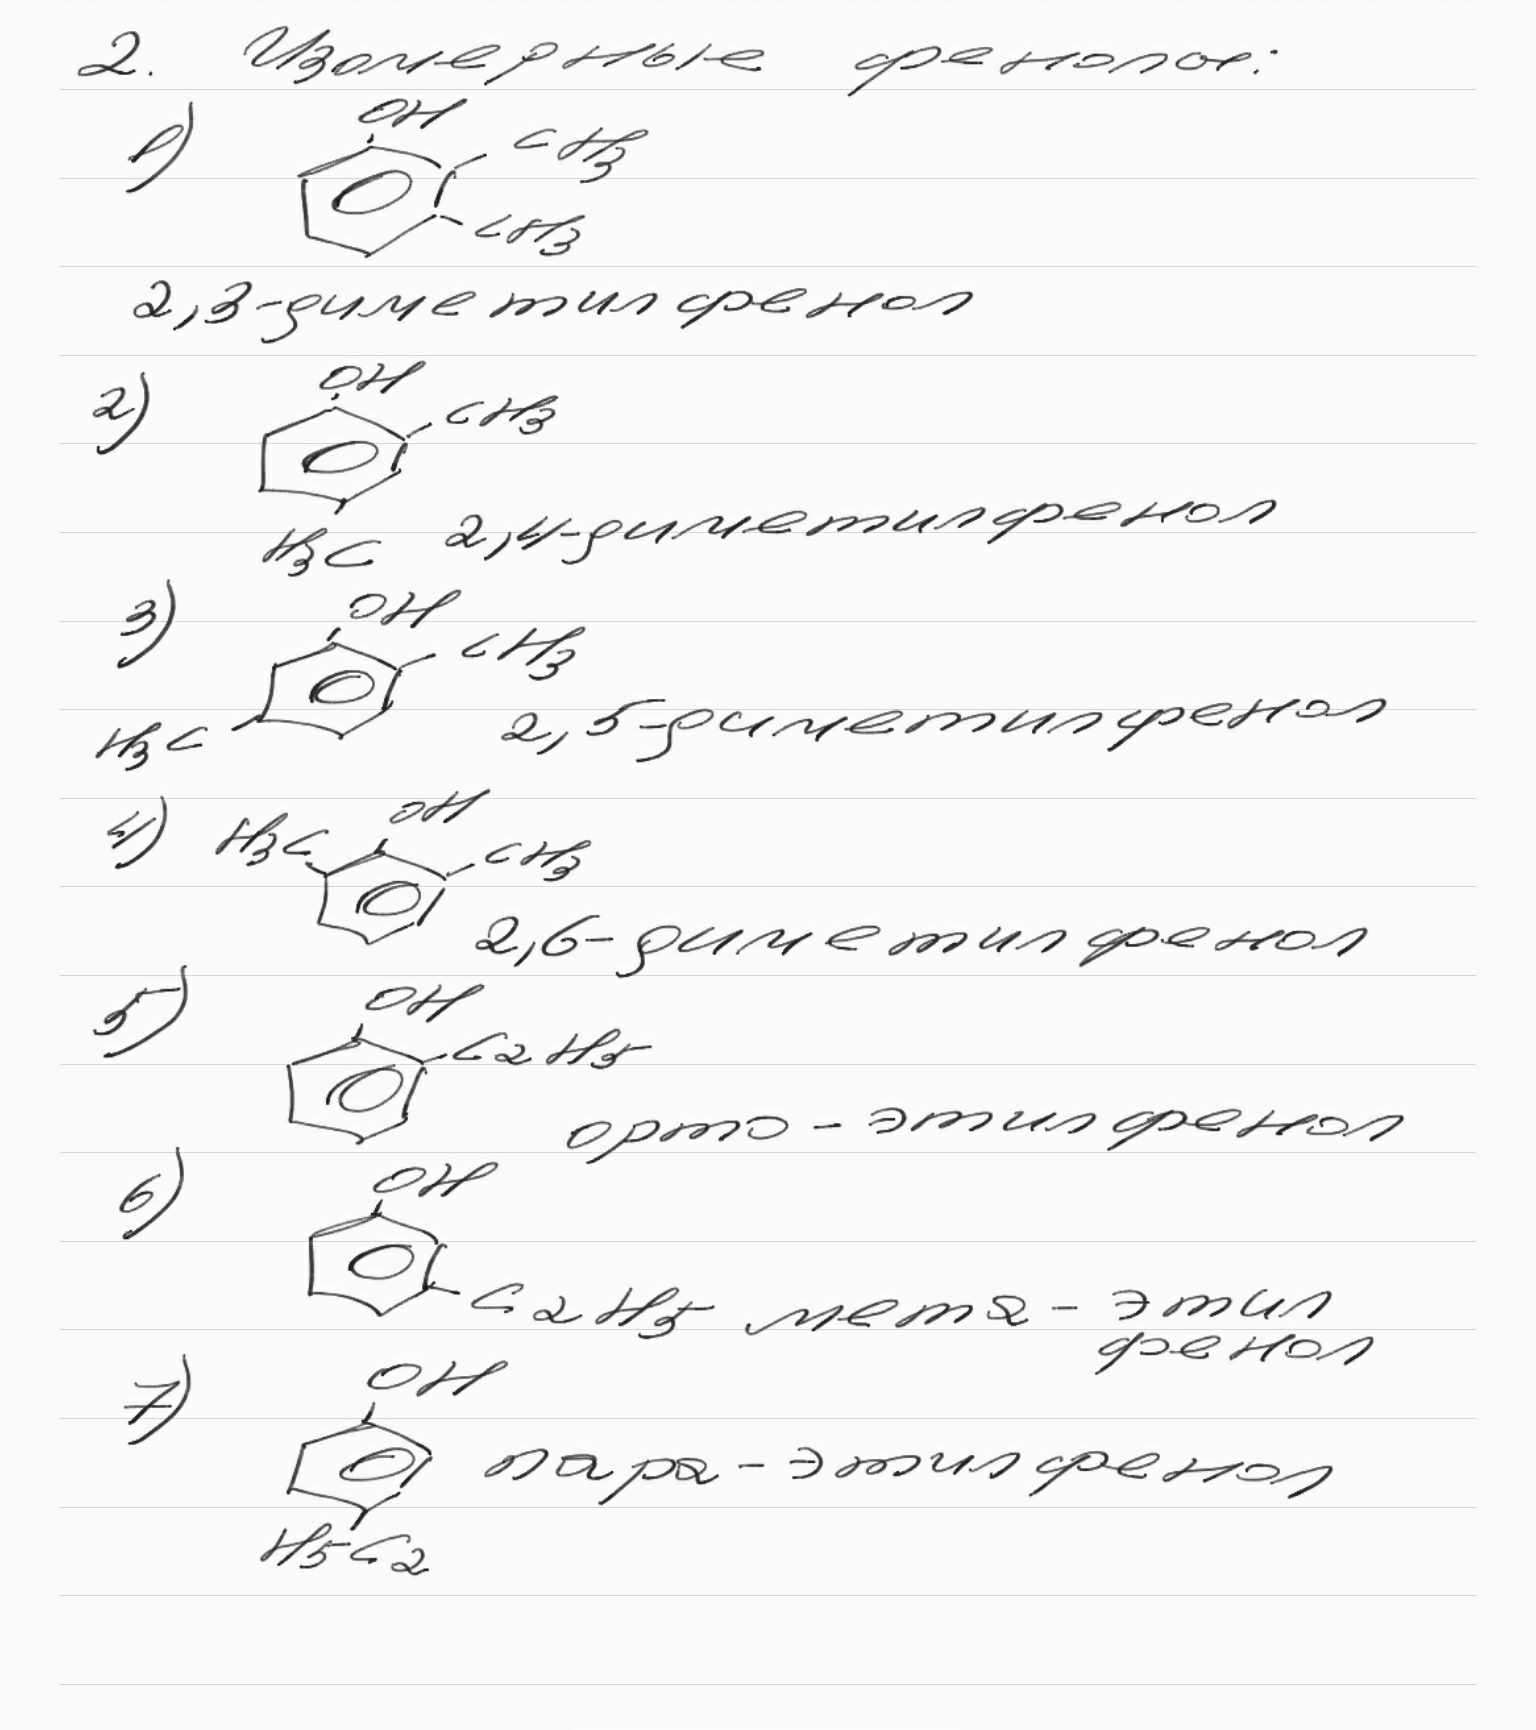 2. Изомерные фенолы:
1) OH
CH3
CH3
2,3-диметилфенол
2) OH
CH3
H3C 2,4-диметилфенол
3) OH
CH3
H3C 2,5-диметилфенол
4) H3C OH
CH3
2,6-диметилфенол
5) OH
C2H5
орто-этилфенол
6) OH
C2H5 мета-этил
фенол
7) OH
пара-этилфенол
H5C2